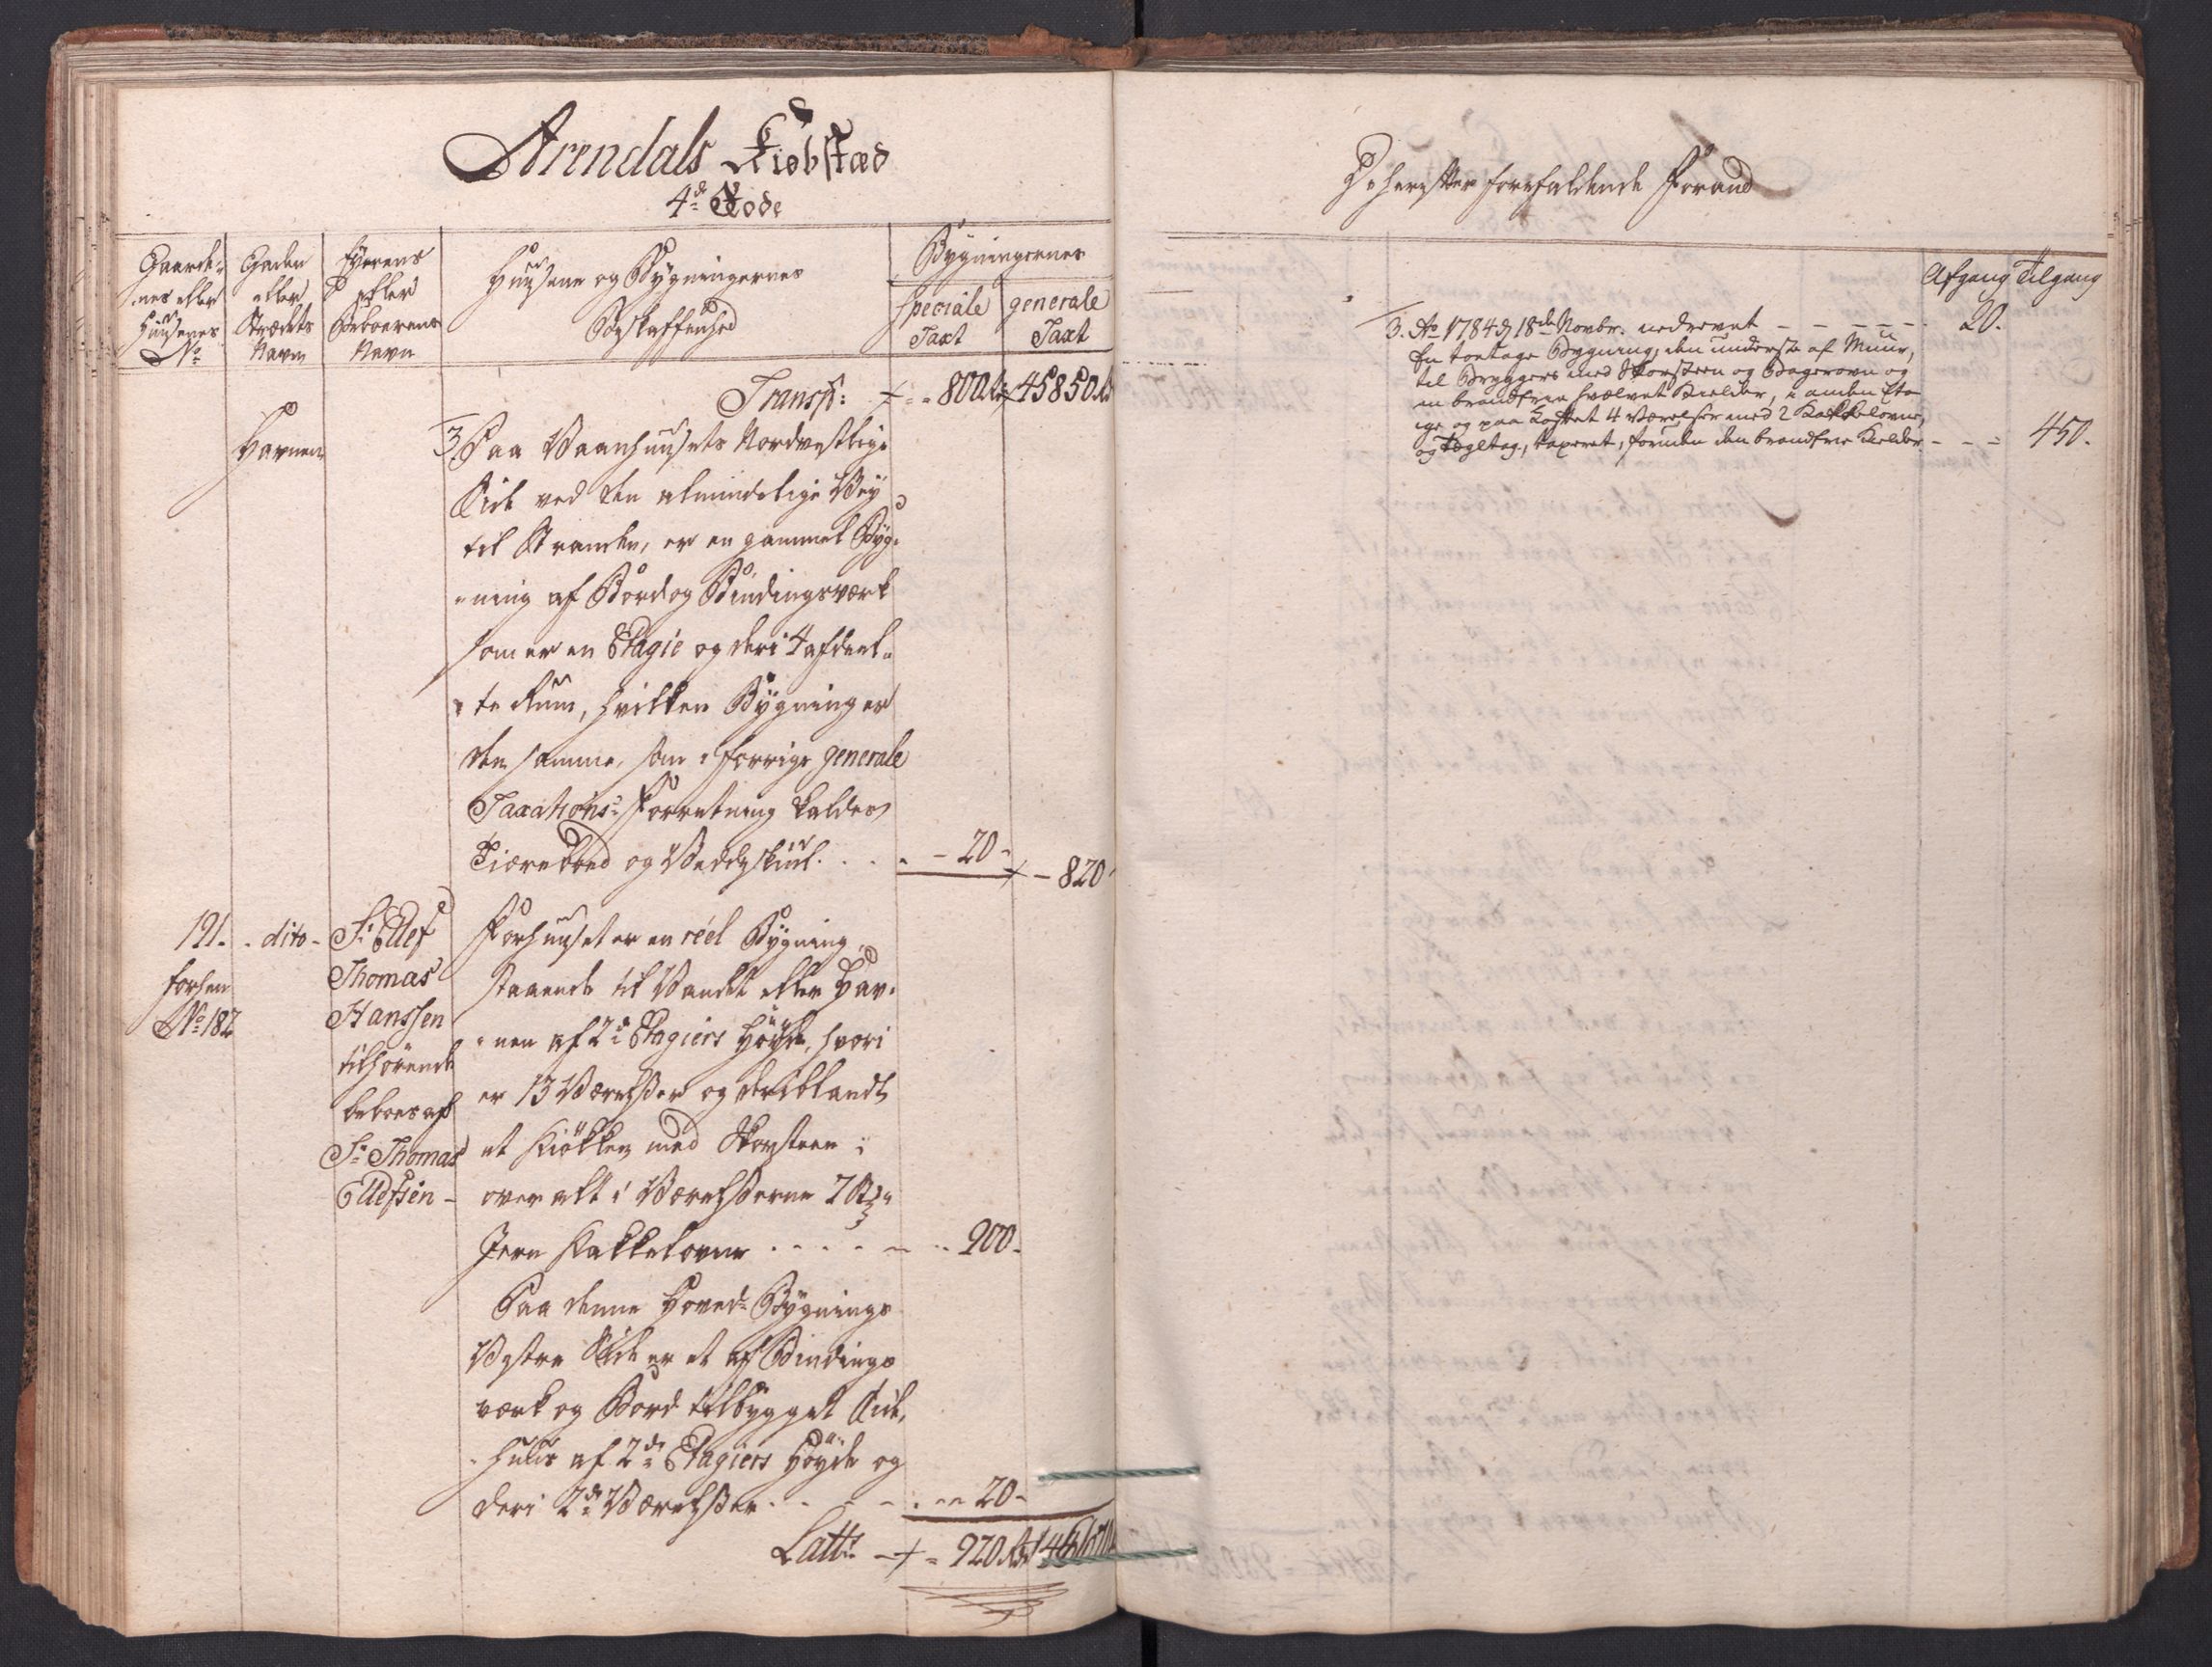 Arendals Kiøbstæd
4de Rode
Gaarde-
nes eller
Huusenes
No
Gaden
eller
Strædets
Navn
Eyerens
eller
Beboerens
Navn
Huusene og Bygningernes
Beskaffenhed
Bygningernes
speciale
Taxt
generale
Taxt
Transp: 800 45850
Havnen
3. Paa Vaanhuusets Nordvestlige
Side ved den almindelige Vey
til Stranden, er en gammel Byg-
ning af Bord og Bindingsværk
som er en Etagie og deri 4 afdeel-
te Rum, hvilken Bygning er
den samme, som i forrige generale
Taxations-Forretning kaldes
Tiærebod og Vedskiul . . . 20 - 820
191. dito - Sr Ellef
Thomas
Hanssen
tilhørende
beboes af
Sr Thomas
Ellefsen -
forhen
No 182
Forhuuset er en reel Bygning
staaende til Vandet eller Hav-
nen af 2de Etagiers Høyde, hvori
er 13 Værelser og deriblandt
et Kiøkken med Skorsteen i
over alt i Værelserne 7
Jern Kakkelovne . . . . 900.
Paa denne Hoved-Bygnings
Vestre Side er et af Bindings
værk og Bord tilbygget Side-
huus af 2de Etagiers Høyde og
deri 2de Værelser . . . . 20 -
Latt: 920
De herefter forefaldende Forand
Afgang Tilgang
3. Ao 1784 d 18de Novbr. nedrevet - - - - - 20.
En toetages Bygning, den underste af Muur,
til Bryggers med Skorsteen og Bagerovn og
en brandfrie hvælvet Kielder, i anden Eta
ge og paa Loftet 4 Værelser med 2 Kakkelovne,
og Tegltag, taxeret, foruden den brandfrie Kielder - - - 450.